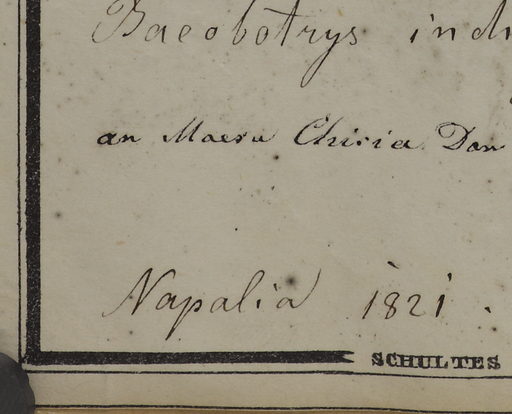 Baeobotrys indi
an Maesa Chisia Don
Napalia 1821.
SCHULTES